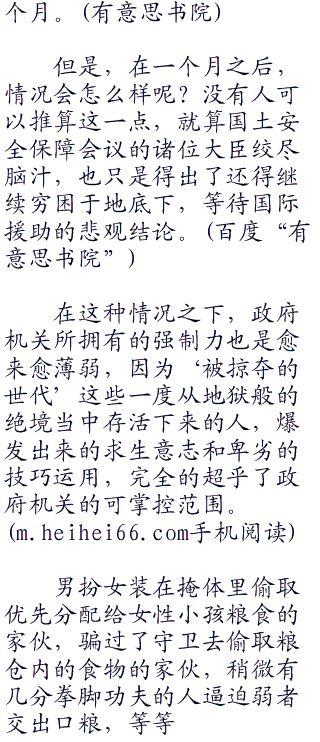 个月。(有意思书院)
但是，在一个月之后，
情况会怎么样呢？没有人可
以推算这一点，就算国土安
全保障会议的诸位大臣绞尽
脑汁，也只是得出了还得继
续穷困于地底下，等待国际
援助的悲观结论。(百度“有
意思书院”)
在这种情况之下，政府
机关所拥有的强制力也是愈
来愈薄弱，因为‘被掠夺的
世代’这些一度从地狱般的
绝境当中存活下来的人，爆
发出来的求生意志和卑劣的
技巧运用，完全的超乎了政
府机关的可掌控范围。
(m.heihei66.com手机阅读)
男扮女装在掩体里偷取
优先分配给女性小孩粮食的
家伙，骗过了守卫去偷取粮
仓内的食物的家伙，稍微有
几分拳脚功夫的人逼迫弱者
交出口粮，等等